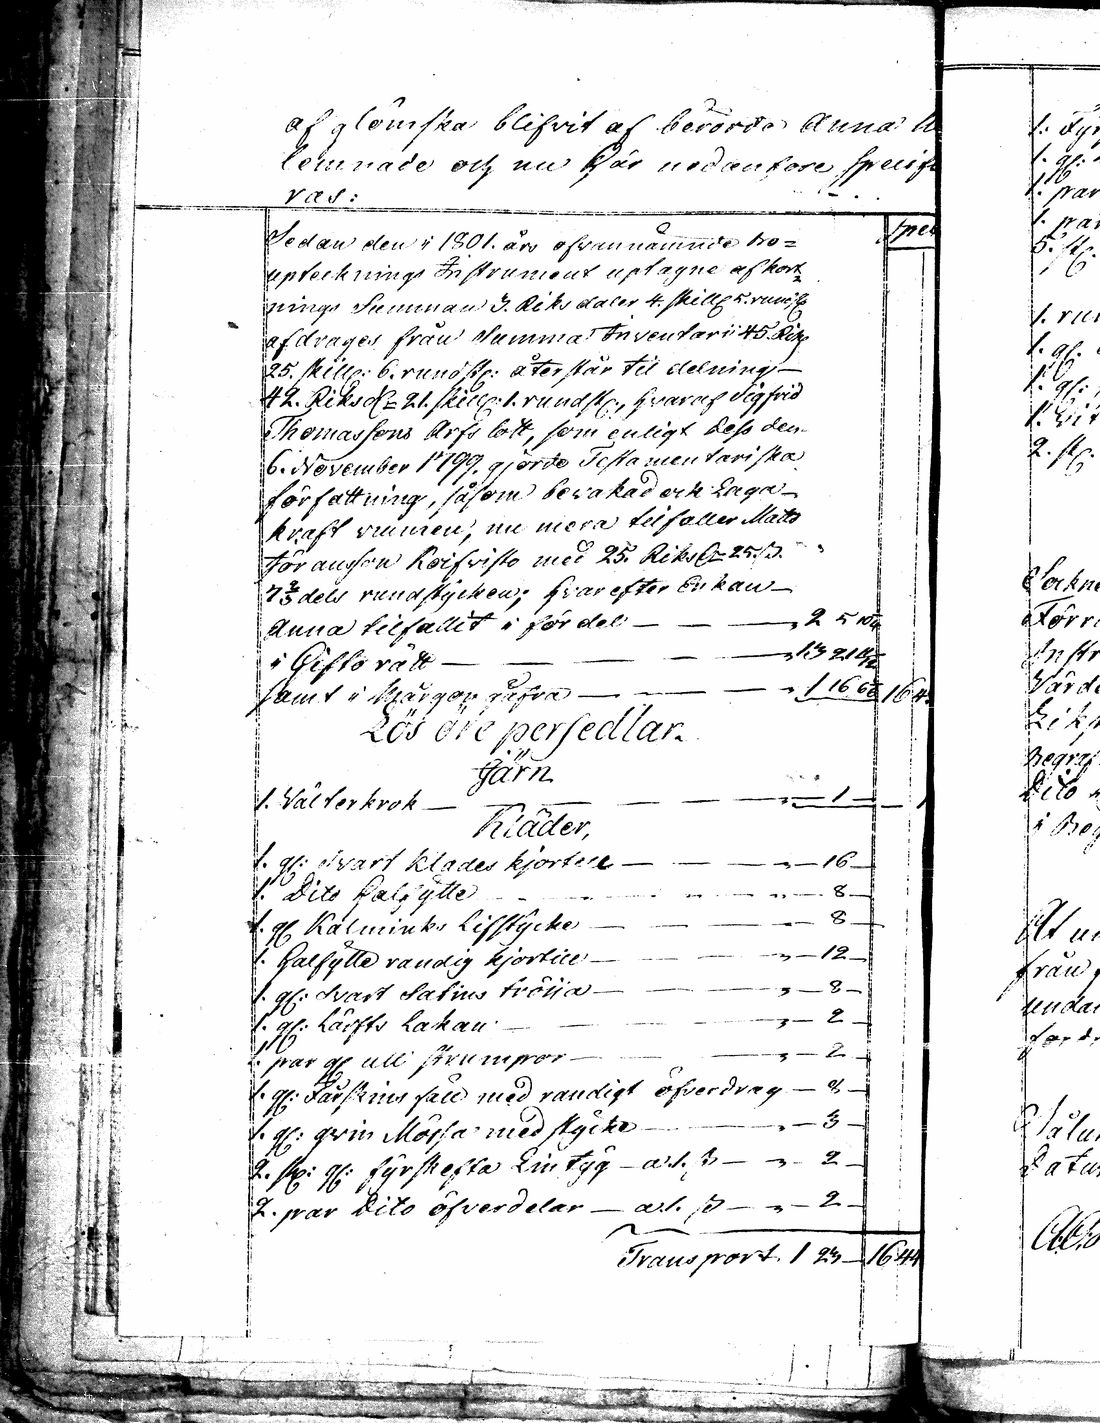 af glömska blifvit af berörde Anna
lemnade och nu här nedanfore Specifi
ras:
Spec
Sedan den i 1801. års ofvannämnde bo=
uptecknings Instrument uptagne afkort
nings Summan 3. Riksdaler 4. skill: 5. runds:
afdrages från Summa Inventarii 45. Rik
25. skill: 6. rundst: återstår til delning —
42. Riksd: 21. skill: 1. rundst:, hvaraf Sigfrid
Thomassons Arfs lott, som enligt dess den
6. November 1799. gjorde Testamentariska
författning, såsom bevakad och Laga
kraft vunnen, nu mera tilfaller Matts
Göransson Koifvisto med 25. Riksd: 25. ß.
7 2/3 dels rundstycken; hvarefter Enkan
Anna tilfallit i fördel — — — 2 5
i Giftorätt — — — — 13 21
samt i — — — 1 16 16 4
Lösöre persedlar.
Järn
1. Välterkrok — — — — „ — 1 —
Kläder,
1. gl: svart Klädes kjortell — — — „ — 16 —
1. Dito halfsytte „ „ — 8 —
1. gl Kalminks Lifstycke — — — „ — 8 —
1. halfsytte randig kjortell — — — „ — 12 —
1. gl: svart Satins tröija — — — „ — 8 —
1. gl: Lärfts Lakan — — — „ — 2 —
1. par gl ull strumpor — — — „ — 2 —
1. gl: Fårskins fäll med randigt öfverdrag — 8 —
1. gl: grön Mössa med stycke — — „ — 3 —
2. st: gl: fyrskefta Lintyg — a 1. ß — „ — 2 —
2. par Dito öfverdelar — a 1. ß — „ — 2 —
Transport. 1 23 — 16 44
1.
1. gl:
1. par
1. par
5. st:
1.
1. gl:
1. gl:
1.
2. st:
Dito
i
At
från
undan